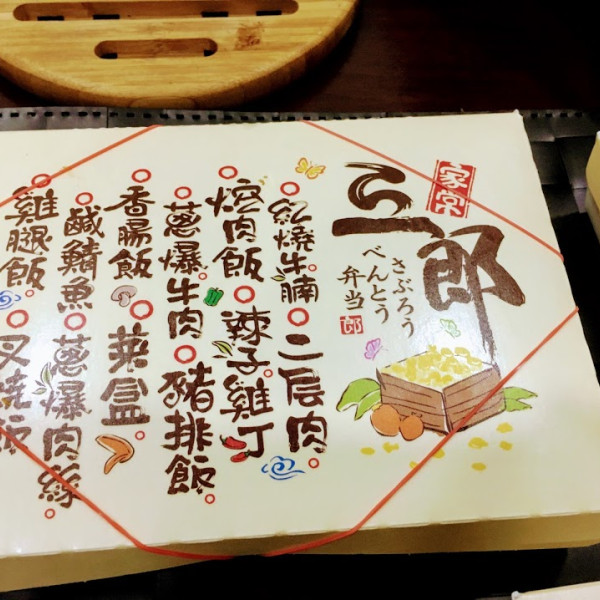 家常
三郎
さぶろう
べんとう
弁当
郎
紅燒牛腩
二层肉
焢肉飯
辣子雞丁
蔥爆牛肉
豬排飯
香腸飯
菜盒
鹹鯖魚
蔥爆肉絲
雞腿飯
叉燒飯